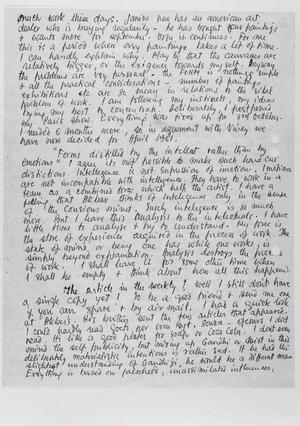 much work these days. Janine now has an american art
dealer who is buying regularly - he has bought four paintings
& wants more for September. Copy in continues. For me
this is a period when every painting takes a lot of time.
I can hardly explain why. May be that the canvases are
relatively bigger, or the exigence towards my self. Anyhow
the problems are very personal - the rest is nothing simple
& all the practical considerations - number of paintings,
exhibitions etc are so mean in relations to the vital
problems of work. I am following my instincts, my ideas
trying my best to concentrate. Deliberately, I postponed
my Paris show. Everything was fixed up for 3rd October.
I needed 6 months more, so in agreement with we
have now decided for April 1961.
"Forms distilled by the intellect rather than by
emotions" I agree is not possible to make such hard
distictions. Intelligence is not seperation of emotion. Emotions
are not incompatible with intelligence. They have to work in a
team as a combined force which hath the artist. I have a
feeling that Akbar thinks of intelligence only in the sense
of the conscious mind. Such intelligence is so much
more. But I leave this Analysis to the intellectuals. I have
little time to analyse & try to understand. My time is
the slow of experience acquired in the process of work. The
state of mind, or being one has while one works, is
simply beyond explanation. Analysis destroys the work
of work. - I shall leave it for some other time when
I shall be empty & think about how all this happened.
The article in the weekly! Well I still don't have
a single copy yet! So be a good friend & send me one
if you can spare & by air mail. I had a quick look
at Akbar's. His brother sent the few articles that appeared
I could hardly read Goets nor even Hoyt. Souza - of course I did
read. It's like a good poster for soap or Coca Cola. I dont even
mind the self publicity, but mixing up Gandhi or Christ in this
delibrately materialistic intentions is rather sad. If he had the
slightest understanding of Gandhiji, he would be a different man
Everything is based on falsehoods, unassimilated influences,